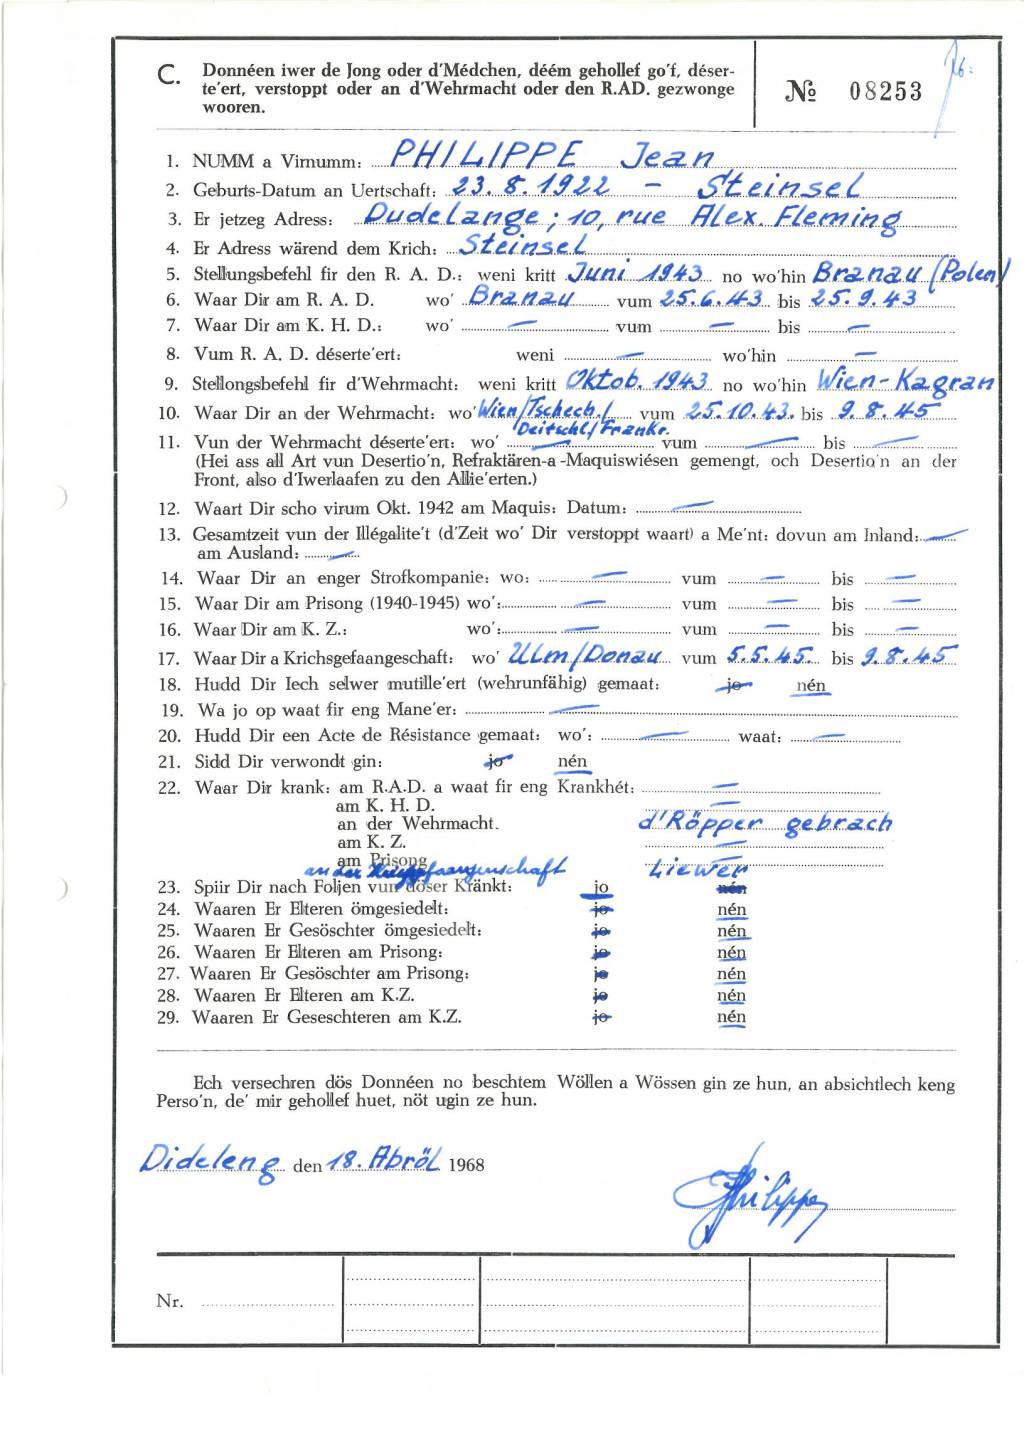 C. Donnéen iwer de Jong oder d'Médchen, déém gehollef go'f, déser-
te'ert, verstoppt oder an d'Wehrmacht oder den R.AD. gezwonge
wooren.
№ 08253
1. NUMM a Virnumm: PHILIPPE Jean
2. Geburts-Datum an Uertschaft: 23.8.1922 - Steinsel
3. Er jetzeg Adress: Dudelange; 10, rue Alex. Fleming
4. Er Adress wärend dem Krich: Steinsel
5. Stellungsbefehl fir den R. A. D.: weni kritt Juni 1943 no wo'hin Branau (Polen)
6. Waar Dir am R. A. D. wo' Branau vum 25.6.43 bis 25.9.43
7. Waar Dir am K. H. D.: wo' — vum — bis —
8. Vum R. A. D. déserte'ert: weni — wo'hin —
9. Stellongsbefehl fir d'Wehrmacht: weni kritt Oktob. 1943 no wo'hin Wien-Kagran
10. Waar Dir an der Wehrmacht: wo' Wien/Tschech./ vum 25.10.43. bis 9.8.45
Deitschl/Frankr.
11. Vun der Wehrmacht déserte'ert: wo' — vum — bis —
(Hei ass all Art vun Desertio'n, Refraktären-a -Maquiswiésen gemengt, och Desertio'n an der
Front, also d'Iwerlaafen zu den Allie'erten.)
12. Waart Dir scho virum Okt. 1942 am Maquis: Datum: —
13. Gesamtzeit vun der Illégalite't (d'Zeit wo' Dir verstoppt waart) a Me'nt: dovun am Inland: —
am Ausland: —
14. Waar Dir an enger Strofkompanie: wo: — vum — bis —
15. Waar Dir am Prisong (1940-1945) wo': — vum — bis —
16. Waar Dir am K. Z.: wo': — vum — bis —
17. Waar Dir a Krichsgefaangeschaft: wo' Ulm/Donau vum 5.5.45. bis 9.8.45
18. Hudd Dir Iech selwer mutille'ert (wehrunfähig) gemaat: jo nén
19. Wa jo op waat fir eng Mane'er: —
20. Hudd Dir een Acte de Résistance gemaat: wo': — waat: —
21. Sidd Dir verwondt gin: jo nén
22. Waar Dir krank: am R.A.D. a waat fir eng Krankhét: —
am K. H. D. —
an der Wehrmacht. d'Röpper gebrach
am K. Z. —
am Prisong —
an der Kriegsgefaangenschaft Liewer
23. Spiir Dir nach Foljen vun döser Kränkt: jo nén
24. Waaren Er Elteren ömgesiedelt: jo nén
25. Waaren Er Gesöschter ömgesiedelt: jo nén
26. Waaren Er Elteren am Prisong: jo nén
27. Waaren Er Gesöschter am Prisong: jo nén
28. Waaren Er Elteren am K.Z. jo nén
29. Waaren Er Geseschteren am K.Z. jo nén
Ech versechren dös Donnéen no beschtem Wöllen a Wössen gin ze hun, an absichtlech keng
Perso'n, de' mir gehollef huet, nöt ugin ze hun.
Dideleng den 18. Abröl 1968
Philippe
Nr.